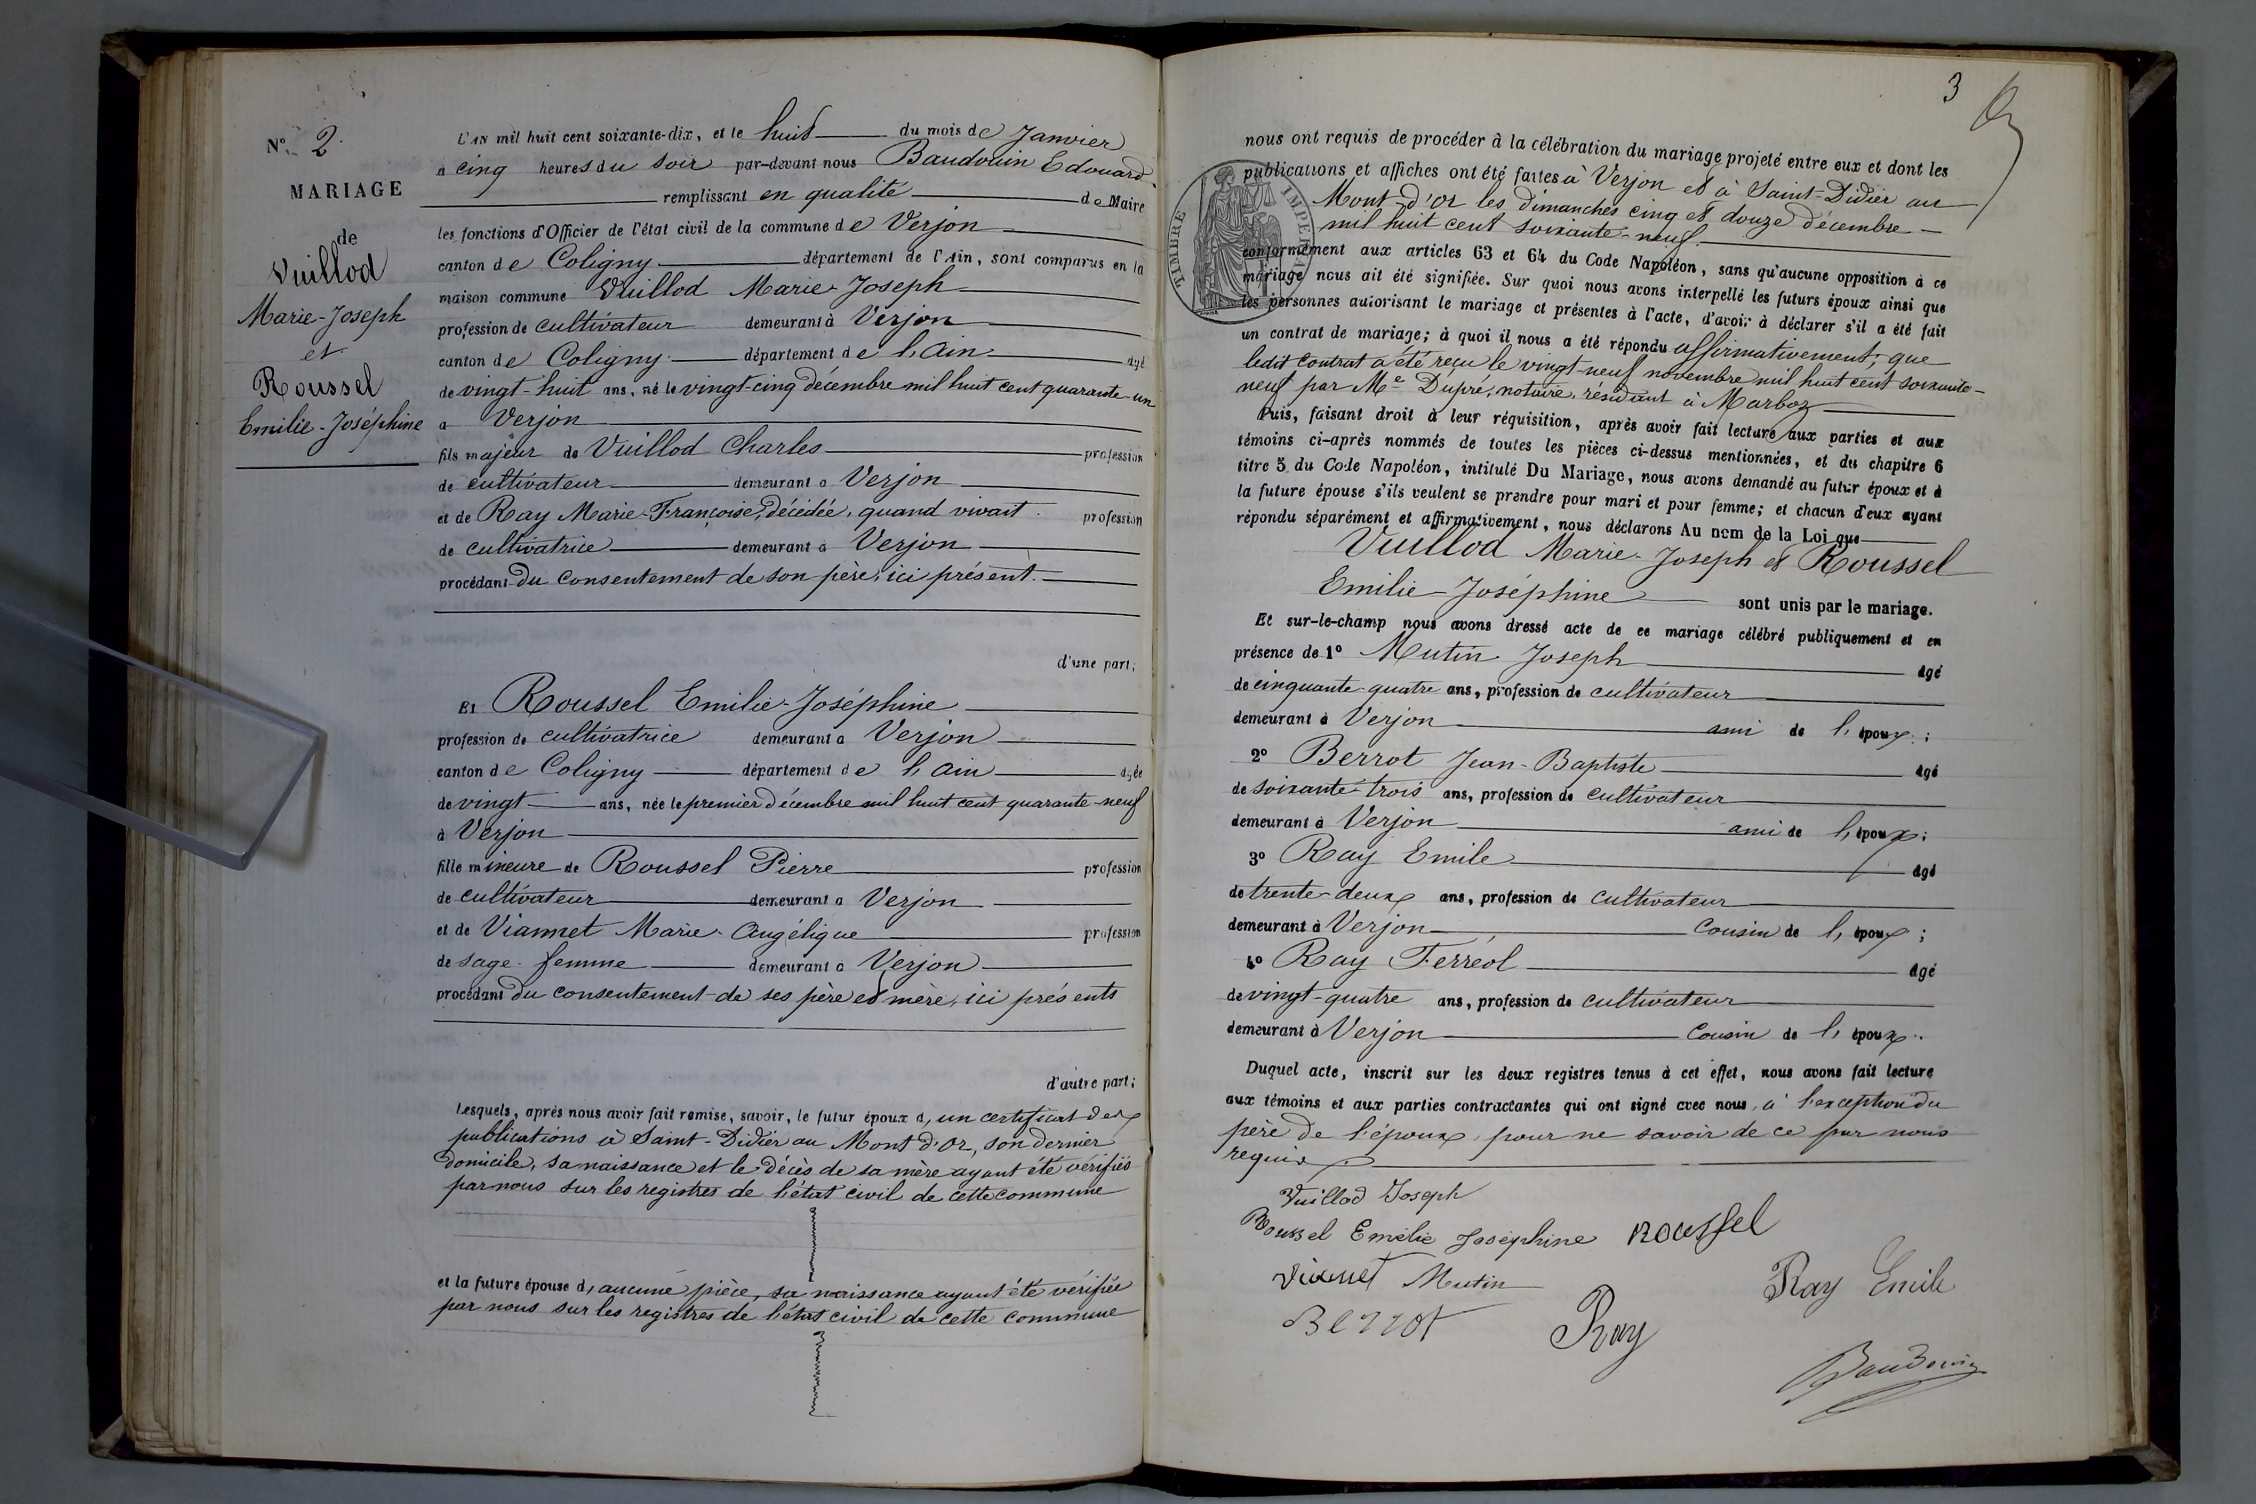 N° 2.
MARIAGE
de
Vuillod
Marie-Joseph
et
Roussel
Emilie-Joséphine
L'AN mil huit cent soixante-dix, et le huit du mois de Janvier
à cinq heures du soir par-devant nous Baudouin Edouard
remplissant en qualité de Maire
les fonctions d'Officier de l'état civil de la commune de Verjon
canton de Coligny département de l'Ain, sont comparus en la
maison commune Vuillod Marie-Joseph
profession de cultivateur demeurant à Verjon
canton de Coligny département de l'Ain âgé
de vingt-huit ans, né le vingt-cinq décembre mil huit cent quarante-un
à Verjon
fils majeur de Vuillod Charles profession
de cultivateur demeurant à Verjon
et de Ray Marie-Françoise, décédée, quand vivait profession
de cultivatrice demeurant à Verjon
procédant du consentement de son père, ici présent.
d'une part;
Et Roussel Emilie-Joséphine
profession de cultivatrice demeurant à Verjon
canton de Coligny département de l'Ain âgée
de vingt ans, née le premier décembre mil huit cent quarante-neuf
à Verjon
fille mineure de Roussel Pierre profession
de cultivateur demeurant à Verjon
et de Viannet Marie-Angélique profession
de sage-femme demeurant à Verjon
procédant du consentement de ses père et mère, ici présents
d'autre part;
Lesquels, après nous avoir fait remise, savoir, le futur époux d, un certificat des
publications à Saint-Didier au Mont d'Or, son dernier
domicile, sa naissance et le décès de sa mère ayant été vérifiés
par nous sur les registres de l'état civil de cette commune
et la future épouse d, aucune pièce, sa naissance ayant été vérifiée
par nous sur les registres de l'état civil de cette commune
3
nous ont requis de procéder à la célébration du mariage projeté entre eux et dont les
publications et affiches ont été faites à Verjon et à Saint-Didier au
Mont-d'Or les dimanches cinq et douze décembre
mil huit cent soixante-neuf.
TIMBRE IMPERIAL
conformément aux articles 63 et 64 du Code Napoléon, sans qu'aucune opposition à ce
mariage nous ait été signifiée. Sur quoi nous avons interpellé les futurs époux ainsi que
les personnes autorisant le mariage et présentes à l'acte, d'avoir à déclarer s'il a été fait
un contrat de mariage; à quoi il nous a été répondu affirmativement; que
ledit contrat a été reçu le vingt-neuf novembre mil huit cent soixante-
neuf par Me Dupré, notaire, résidant à Marboz
Puis, faisant droit à leur réquisition, après avoir fait lecture aux parties et aux
témoins ci-après nommés de toutes les pièces ci-dessus mentionnées, et du chapitre 6
titre 5 du Code Napoléon, intitulé Du Mariage, nous avons demandé au futur époux et à
la future épouse s'ils veulent se prendre pour mari et pour femme; et chacun d'eux ayant
répondu séparément et affirmativement, nous déclarons Au nom de la Loi que
Vuillod Marie-Joseph et Roussel
Emilie-Joséphine sont unis par le mariage.
Et sur-le-champ nous avons dressé acte de ce mariage célébré publiquement et en
présence de 1° Mutin Joseph âgé
de cinquante-quatre ans, profession de cultivateur
demeurant à Verjon ami de l'époux;
2° Berrot Jean-Baptiste âgé
de soixante-trois ans, profession de cultivateur
demeurant à Verjon ami de l'époux;
3° Ray Emile âgé
de trente-deux ans, profession de cultivateur
demeurant à Verjon cousin de l'époux;
4° Ray Ferréol âgé
de vingt-quatre ans, profession de cultivateur
demeurant à Verjon cousin de l'époux.
Duquel acte, inscrit sur les deux registres tenus à cet effet, nous avons fait lecture
aux témoins et aux parties contractantes qui ont signé avec nous, à l'exception du
père de l'époux, pour ne savoir de ce par nous
requis.
Vuillod Joseph
Roussel Emélie Joséphine Roussel
Viannet Mutin
Ray Emile
Berrot Ray
Baudouin